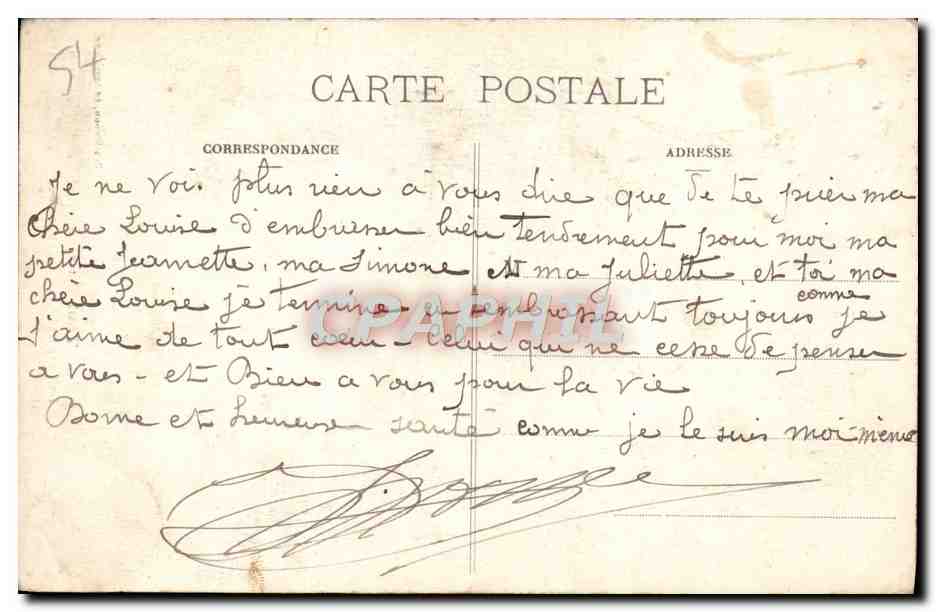 54
CARTE POSTALE
CORRESPONDANCE
ADRESSE
Je ne vois plus rien a vous dire que de te prier ma
Chèie Louise d'embrasser bien tendrement pour moi ma
petite Jeannette, ma Simone et ma Juliette, et toi ma
chèie Louise je termine en t'embrassant toujours comme je
t'aime de tout coeur - Celui qui ne cesse de penser
a vous - et Bien a vous pour la vie
Bonne et heureuse santé comme je le suis moi même
CPAPHIL